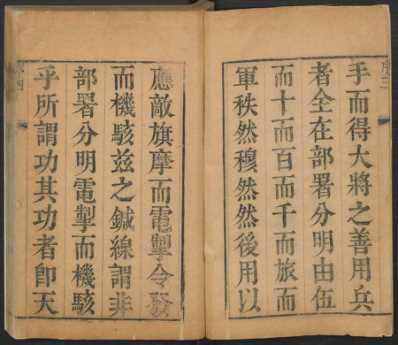 手而得大將之善用兵
者全在部署分明由伍
而十而百而千而旅而
軍秩然穆然然後用以
應敵旗摩而電掣令發
而機駭茲之鍼線謂非
部署分明電掣而機駭
乎所謂功其功者卽天